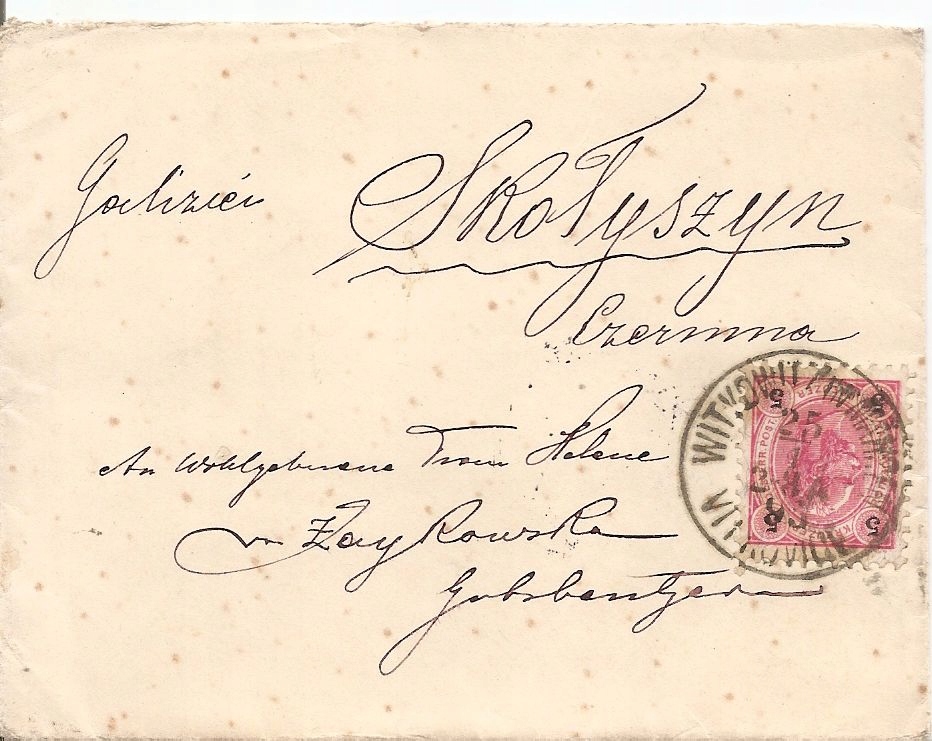 Galizien
Skołyszyn
Czermna
An Wohlgeborene Frau Helene
v. Zaykowska
Gutsbesitzerin
WITKOWITZ
5 5
5 5